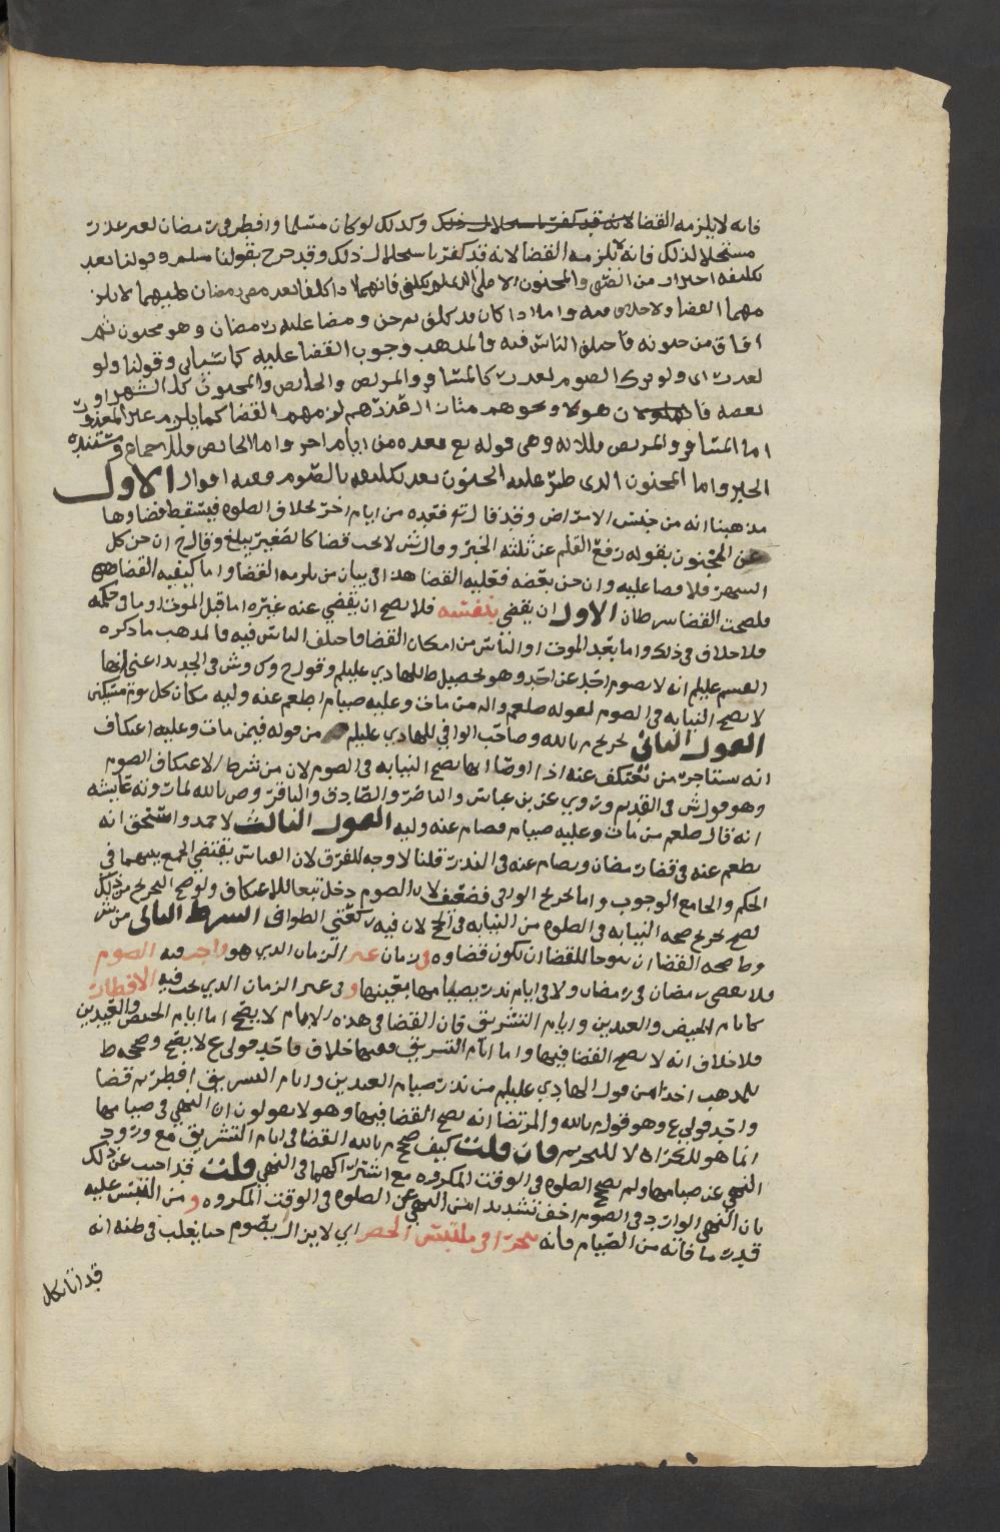 فانه لا يلزمه القضا لانه قد كفر باستحلال ذلك وكذلك لو كان مسلما وافطر في رمضان لغير عذر
مستحلا لذلك فانه لا يلزمه القضا لانه قد كفر باستحلال ذلك وقد خرج بقولنا مسلم وقولنا بعد
تكليفه احترازا من الصبي والمجنون الاصلي الذي لم يكلف فانهما اذا كلفا بعد مضي رمضان عليهما لا يلز
مهما القضا ولا خلاف فيه واما اذا كان قد كلف ثم جن ومضا عليه رمضان وهو مجنون ثم
افاق من جنونه فاختلف الناس فيه والمذهب وجوب القضا عليه كما سياتي وقولنا ولو
لعذر اي ولو ترك الصوم لعذر كالمسافر والمريض والحائض والمجنون كل الشهر او
بعضه فان هولا ونحوهم متى زال عذرهم لزمهم القضا كما يلزم غير المعذور
اما المسافر والمريض فللآيه وهي قوله تع فعده من ايام اخر واما الحائض فللاجماع ومستنده
الخبر واما المجنون الذي طرى عليه الجنون بعد تكليفه بالصوم ففيه اقوال الاول
مذهبنا انه من جنس الامراض وقد قال تع فعده من ايام اخر بخلاف الصلوه فيسقط قضاوها
عن المجنون بقوله رفع القلم عن ثلثه الخبر وقال ش لا يجب قضا كالصغير يبلغ وقال ح ان جن كل
الشهر فلا قضا عليه وان جن بعضه فعليه القضا هذا في بيان من يلزمه القضا واما كيفيه القضا
فلصحت القضا شرطان الاول ان يقضي بنفسه فلا يصح ان يقضي عنه غيره اما قبل الموت او ما في حكمه
فلا خلاف في ذلك واما بعد الموت او الياس من امكان القضا فاختلف الناس فيه فالمذهب ما ذكره
القسم عليلم انه لا يصوم احد عن احد وهو تحصيل ط للهادي عليلم وقول ح وك وش في الجديد اعني انها
لا تصح النيابه في الصوم لقوله صلعم واله من مات وعليه صيام اطعم عنه وليه مكان كل يوم مسكين
القول الثاني تخريج م بالله وصاحب الوافي للهادي عليلم من قوله فيمن مات وعليه اعتكاف
انه يستاجر من يعتكف عنه اذا اوصا انها تصح النيابه في الصوم لان من شرط الاعتكاف الصوم
وهو قول ش في القديم وروي عن بن عباس والناصر والصادق والباقر وص بالله لما روته عايشه
انه قال صلعم من مات وعليه صيام صام عنه وليه القول الثالث لاحمد واسحق انه
يطعم عنه في قضا رمضان ويصام عنه في النذر قلنا لا وجه للفرق لان القياس يقتضي الجمع بينهما في
الحكم والجامع الوجوب واما تخريج الوافي فضعيف لان الصوم دخل تبعا للاعتكاف ولو صح التخريج من ذلك
لصح تخريج صحه النيابه في الصلوه من النيابه في الحج لان فيه ركعتي الطواف الشرط الثاني من ش
وط صحه القضا ان يتوخا للقضا ان يكون قضاوه في زمان غير الزمان الذي هو واجب فيه الصوم
فلا يقضي رمضان في رمضان ولا في ايام نذر بصيامها بعينها وفي غير الزمان الذي يجب فيه الافطار
كايام الحيض والعيدين وايام التشريق فان القضا في هذه الايام لا يصح اما ايام الحيض والعيدين
فلا خلاف انه لا يصح القضا فيها واما ايام التشريق ففيها خلاف فاحد قولي ع لا يصح وصححه ط
للمذهب اخذا من قول الهادي عليلم من نذر صيام العيدين وايام التشريق افطر ثم قضا
واحد قولي ع وهو قول م بالله والمرتضا انه يصح القضا فيها وهو لا يقولون ان النهي في صيامها
انما هو للكراهه لا للتحريم فان قلت كيف صحح م بالله القضا في ايام التشريق مع ورود
النهي عن صيامها ولم يصحح الصلوه في الوقت المكروه مع اشتراكهما في النهي قلت قد اجيب عن ذلك
بان النهي الوارد في الصوم اخف تشديدا من النهي عن الصلوه في الوقت المكروه ومن التبس عليه
قدر ما فاته من الصيام فانه يتحرى في ملتبس الحصر اي لا يزال يصوم حتى يغلب في ظنه انه
قد اتا بكل